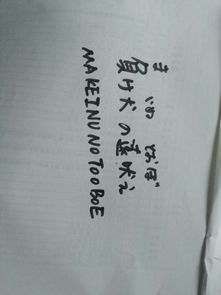 ま いぬ とおぼ
負け犬の遠吠え
MAKEINU NO TOOBOE